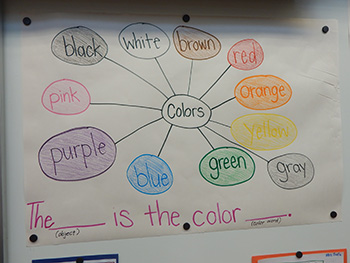 black
white
brown
red
pink
orange
Colors
yellow
purple
blue
green
gray
The ____ is the color ____.
(object) (color word)